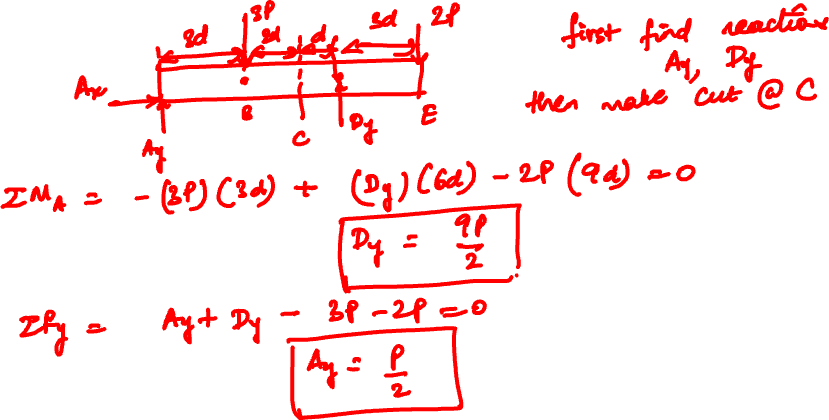 3P 2P
3d 2d d 3d
Ax
B C Dy E
Ay
first find reactions
Ay, Dy
then make cut @ C
ΣM_A = - (3P)(3d) + (Dy)(6d) - 2P(9d) = 0
Dy = 9P/2
ΣFy = Ay + Dy - 3P - 2P = 0
Ay = P/2